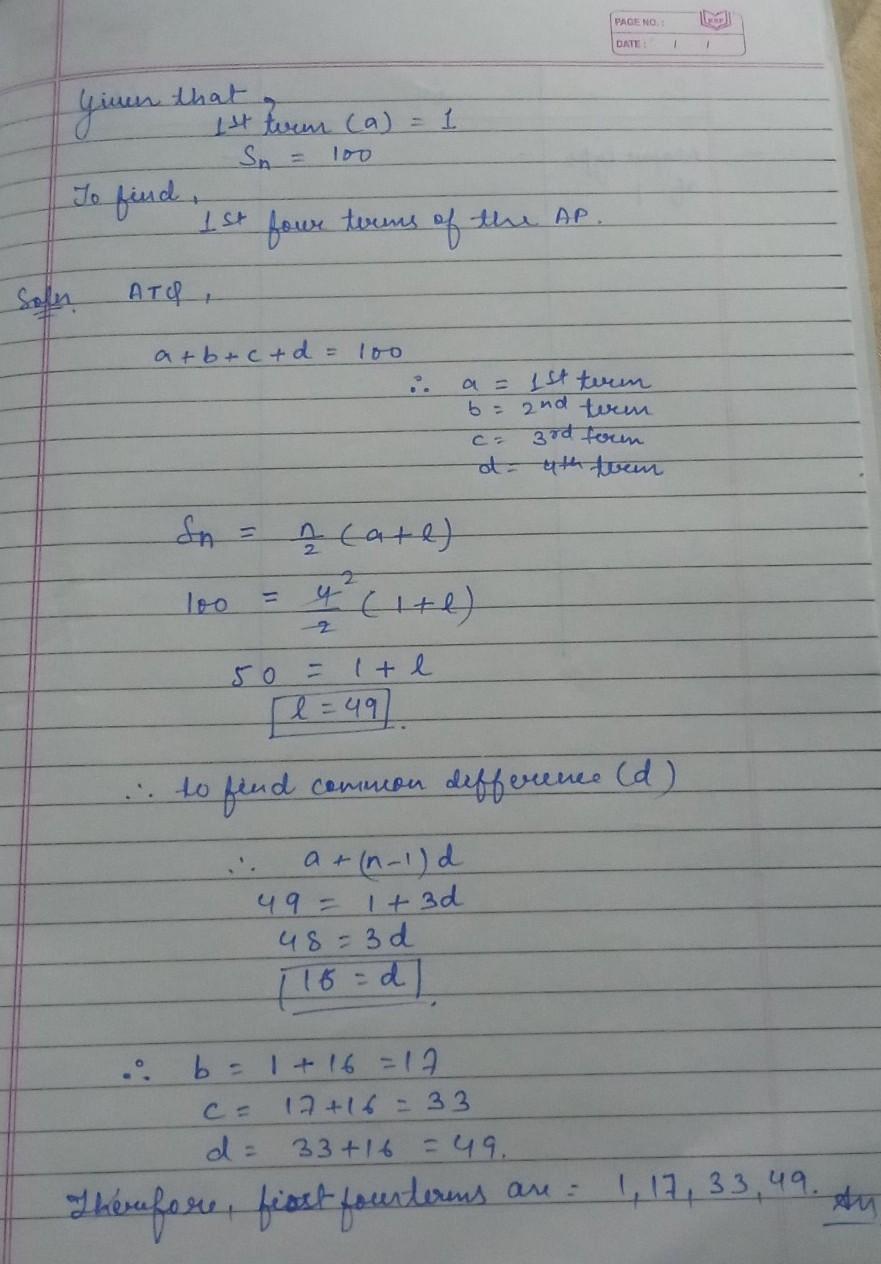 PAGE NO.:
DATE: / /
Given that,
1st term (a) = 1
Sn = 100
To find,
1st four terms of the AP.
Soln. ATQ,
a+b+c+d = 100
∴ a = 1st term
b = 2nd term
c = 3rd term
d = 4th term
Sn = n/2 (a+l)
100 = 4/2 2 (1+l)
50 = 1+l
l = 49.
∴ to find common difference (d)
∴ a+(n-1)d
49 = 1+3d
48 = 3d
16 = d.
∴ b = 1+16 = 17
c = 17+16 = 33
d = 33+16 = 49.
Therefore, first four terms are = 1, 17, 33, 49. Ans